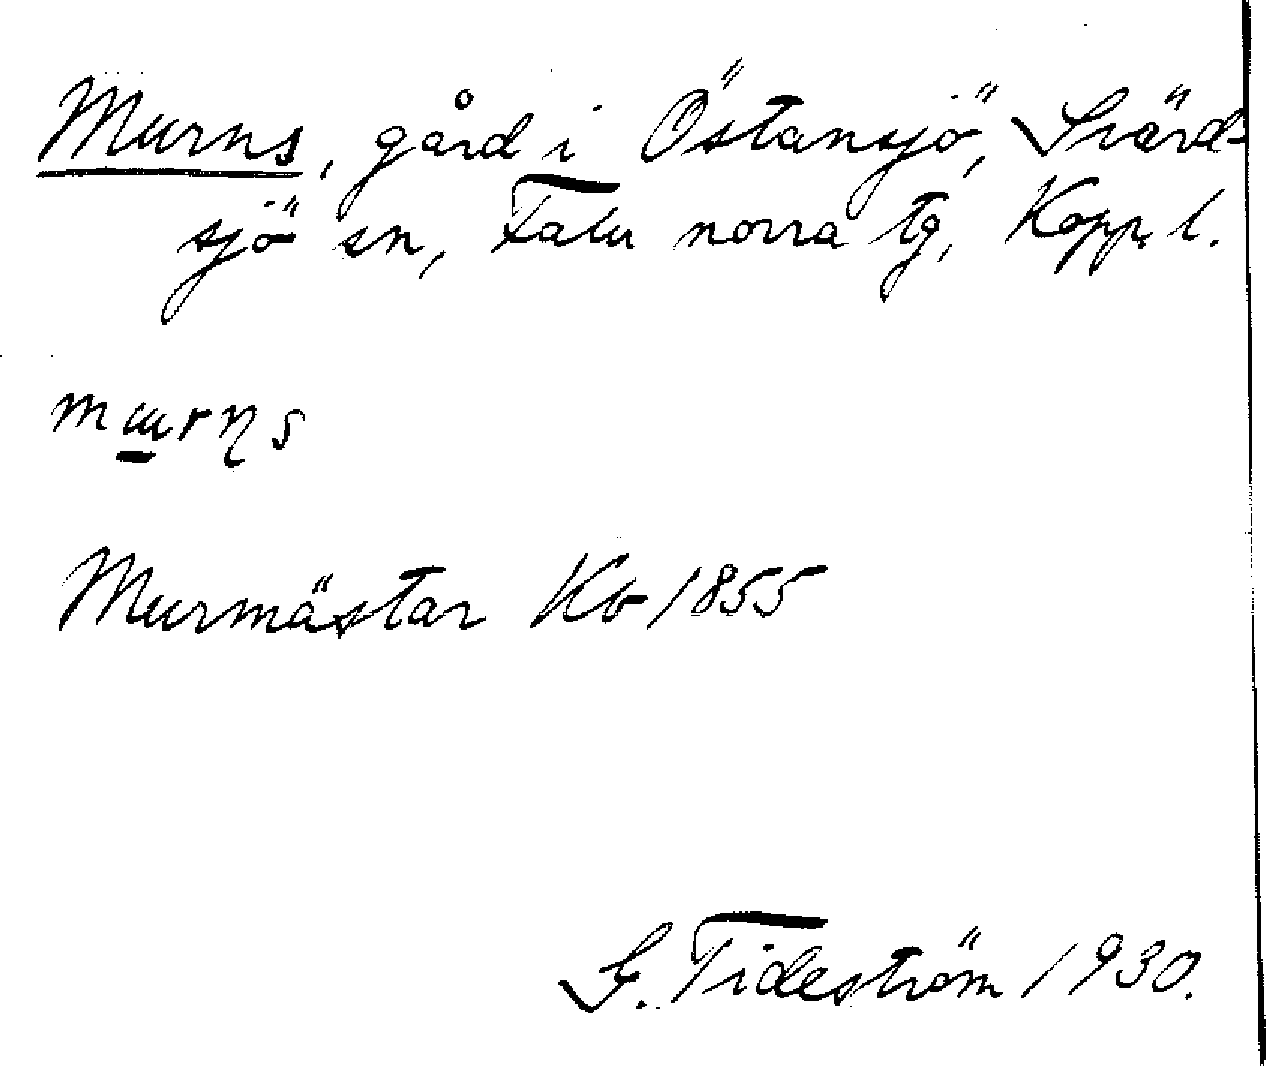 Murns, gård i Östansjö, Svärd-
sjö sn, Falu norra tg, Kopp. l.
mɯrŋs
Murmästar Kb 1855
G. Tideström 1930.